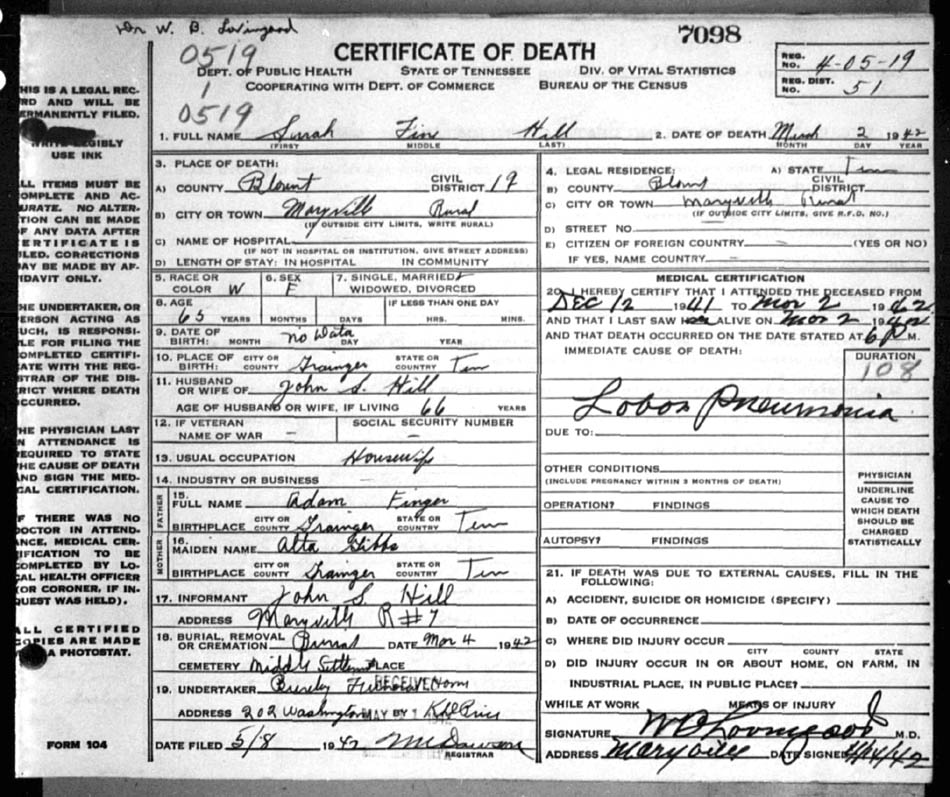 Dr W. B. Lovingood
0519
7098
CERTIFICATE OF DEATH
REG. NO. 4-05-19
DEPT. OF PUBLIC HEALTH STATE OF TENNESSEE DIV. OF VITAL STATISTICS
REG. DIST. 51
1 COOPERATING WITH DEPT. OF COMMERCE BUREAU OF THE CENSUS
0519
1. FULL NAME Sarah Hill 2. DATE OF DEATH March 2 1942
(FIRST) MIDDLE LAST) MONTH DAY YEAR
HIS IS A LEGAL REC-
RD AND WILL BE
ERMANENTLY FILED.
WRITE LEGIBLY
USE INK
LL ITEMS MUST BE
OMPLETE AND AC-
URATE. NO ALTER-
TION CAN BE MADE
F ANY DATA AFTER
ERTIFICATE IS
ILED. CORRECTIONS
AY BE MADE BY AF-
IDAVIT ONLY.
HE UNDERTAKER, OR
ERSON ACTING AS
UCH, IS RESPONSI-
LE FOR FILING THE
OMPLETED CERTIFI-
ATE WITH THE REG-
STRAR OF THE DIS-
RICT WHERE DEATH
CCURRED.
HE PHYSICIAN LAST
N ATTENDANCE IS
EQUIRED TO STATE
HE CAUSE OF DEATH
ND SIGN THE MED-
CAL CERTIFICATION.
F THERE WAS NO
OCTOR IN ATTEND-
NCE, MEDICAL CER-
IFICATION TO BE
OMPLETED BY LO-
AL HEALTH OFFICER
(OR CORONER, IF IN-
QUEST WAS HELD).
LL CERTIFIED
OPIES ARE MADE
A PHOTOSTAT.
FORM 104
3. PLACE OF DEATH:
A) COUNTY Blount CIVIL DISTRICT 19
B) CITY OR TOWN Maryville Rural
(IF OUTSIDE CITY LIMITS, WRITE RURAL)
C) NAME OF HOSPITAL
(IF NOT IN HOSPITAL OR INSTITUTION, GIVE STREET ADDRESS)
D) LENGTH OF STAY: IN HOSPITAL IN COMMUNITY
5. RACE OR COLOR W 6. SEX F 7. SINGLE, MARRIED, WIDOWED, DIVORCED
8. AGE 65 YEARS MONTHS DAYS IF LESS THAN ONE DAY HRS. MINS.
9. DATE OF BIRTH: MONTH No Data DAY YEAR
10. PLACE OF BIRTH: CITY OR COUNTY Grainger STATE OR COUNTRY Tenn
11. HUSBAND OR WIFE OF John S. Hill
AGE OF HUSBAND OR WIFE, IF LIVING 66 YEARS
12. IF VETERAN NAME OF WAR - SOCIAL SECURITY NUMBER -
13. USUAL OCCUPATION Housewife
14. INDUSTRY OR BUSINESS -
FATHER
15. FULL NAME Adam Finger
BIRTHPLACE CITY OR COUNTY Grainger STATE OR COUNTRY Tenn
MOTHER
16. MAIDEN NAME Alta Gibbs
BIRTHPLACE CITY OR COUNTY Grainger STATE OR COUNTRY Tenn
17. INFORMANT John S. Hill
ADDRESS Maryville R#7
18. BURIAL, REMOVAL OR CREMATION Burial DATE Mar 4 1942
CEMETERY Middle Settlement PLACE
19. UNDERTAKER RECEIVED Home
ADDRESS 202 Washington MAY BY
DATE FILED 5/8 1942 REGISTRAR
4. LEGAL RESIDENCE: A) STATE Tenn
B) COUNTY Blount CIVIL DISTRICT
C) CITY OR TOWN Maryville Rural
(IF OUTSIDE CITY LIMITS, GIVE R.F.D. NO.)
D) STREET NO.
E) CITIZEN OF FOREIGN COUNTRY - (YES OR NO)
IF YES, NAME COUNTRY -
MEDICAL CERTIFICATION
20. I HEREBY CERTIFY THAT I ATTENDED THE DECEASED FROM
DEC 12 1941 TO Mar 2 1942
AND THAT I LAST SAW ALIVE ON Mar 2 1942
AND THAT DEATH OCCURRED ON THE DATE STATED AT 6 P M.
IMMEDIATE CAUSE OF DEATH: DURATION
108
Lobar Pneumonia
DUE TO:
OTHER CONDITIONS
(INCLUDE PREGNANCY WITHIN 3 MONTHS OF DEATH)
OPERATION? FINDINGS
AUTOPSY? FINDINGS
PHYSICIAN
UNDERLINE
CAUSE TO
WHICH DEATH
SHOULD BE
CHARGED
STATISTICALLY
21. IF DEATH WAS DUE TO EXTERNAL CAUSES, FILL IN THE
FOLLOWING:
A) ACCIDENT, SUICIDE OR HOMICIDE (SPECIFY)
B) DATE OF OCCURRENCE
C) WHERE DID INJURY OCCUR
CITY COUNTY STATE
D) DID INJURY OCCUR IN OR ABOUT HOME, ON FARM, IN
INDUSTRIAL PLACE, IN PUBLIC PLACE?
WHILE AT WORK MEANS OF INJURY
SIGNATURE W B Lovingood M.D.
ADDRESS Maryville DATE SIGNED 4/14/42